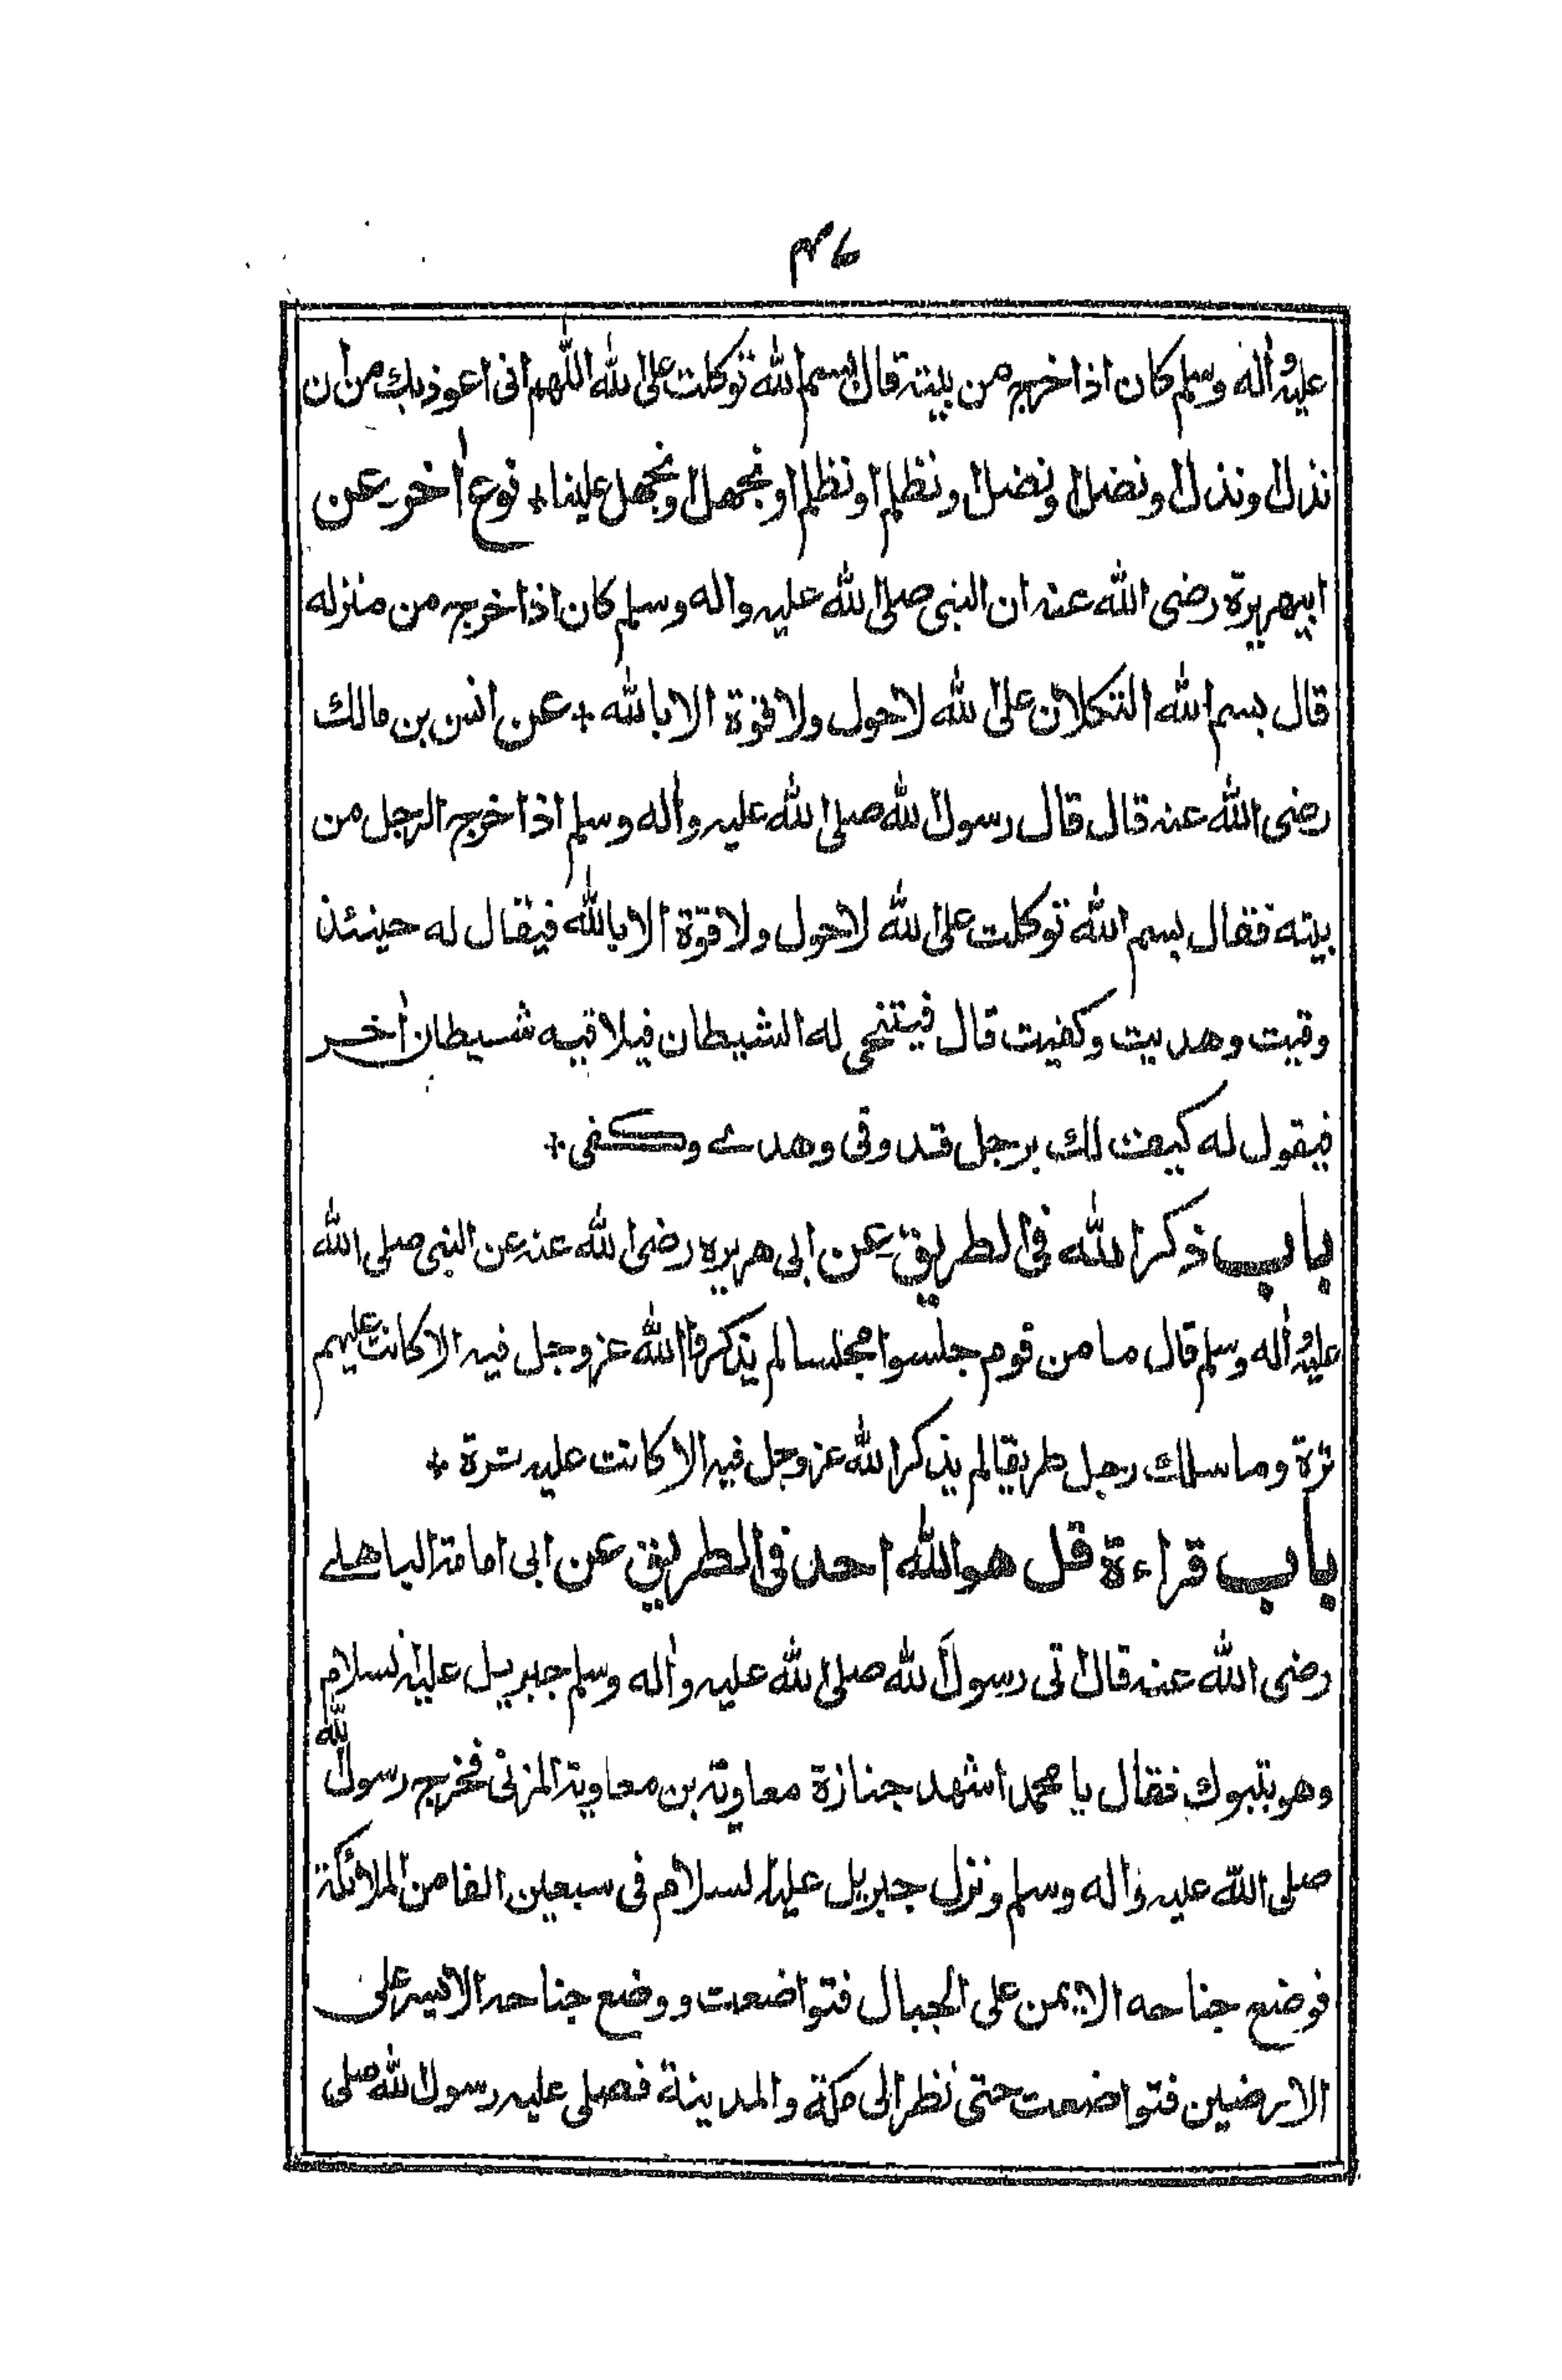 ۴۷
عليه واٰله وسلم كان اذا خرج من بيته قال بسم الله توكلت على الله اللٰهم انى اعوذ بك من ان
نذل ونذل ونضل ونضل ونظلم اونظلم اونجهل ونجهل علينا + نوع اٰخر عن
ابيهريرة رضى الله عنه ان النبى صلى الله عليه واله وسلم كان اذا خرج من منزله
قال بسم الله التكلان على الله لاحول ولا قوة الا بالله + عن انس بن مالك
رضى الله عنه قال قال رسول الله صلى الله عليه واٰله وسلم اذا خرج الرجل من
بيته فقال بسم الله توكلت على الله لاحول ولا قوّة الا بالله فيقال له حينئذ
وقيت وهديت وكفيت قال فيتنحى له الشيطان فيلاقيه شيطان اٰخر
فيقول له كيف لك برجل قد وقى وهدے وكفى +
باب ذكر الله فى الطريق عن ابى هريره رضى الله عنه عن النبى صلى الله
عليه واٰله وسلم قال ما من قوم جلسوا مجلسا لم يذكروا الله عز وجل فيه الا كانت عليهم
ترة وما سلك رجل طريقا لم يذكر الله عز وجل فيه الا كانت عليه ترة +
باب قراءة قل هو الله احد فى الطريق عن ابى امامة الباهلے
رضى الله عنه قال اتى رسول الله صلى الله عليه واٰله وسلم جبريل عليه السلام
وهو بتبوك فقال يا محمد اشهد جنازة معاوية بن معاوية المزنى فخرج رسول الله
صلى الله عليه واٰله وسلم ونزل جبريل عليه السلام فى سبعين الفا من الملائكة
فوضع جناحه الايمن على الجبال فتواضعت ووضع جناحه الايسر على
الارضين فتواضعت حتى نظر الى مكة والمدينة فصلى عليه رسول الله صلى